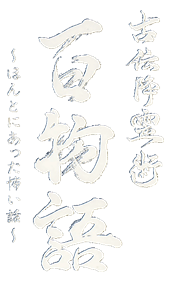 古伝降霊術
百物語
〜ほんとにあった怖い話〜